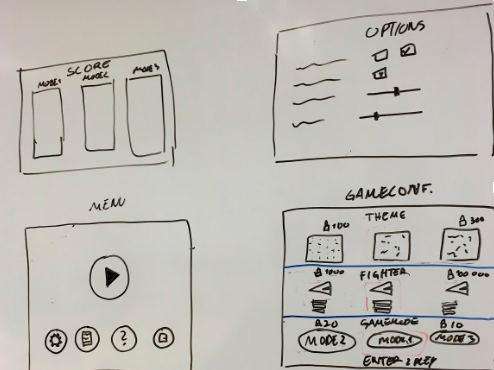 SCORE
MODE1 MODE2 MODE3
OPTIONS
MENU
?
GAMECONF.
THEME
100 300
1000 FIGHTER
20 GAMEMODE 10
MODE2 MODE1 MODE3
ENTER 2 PLAY